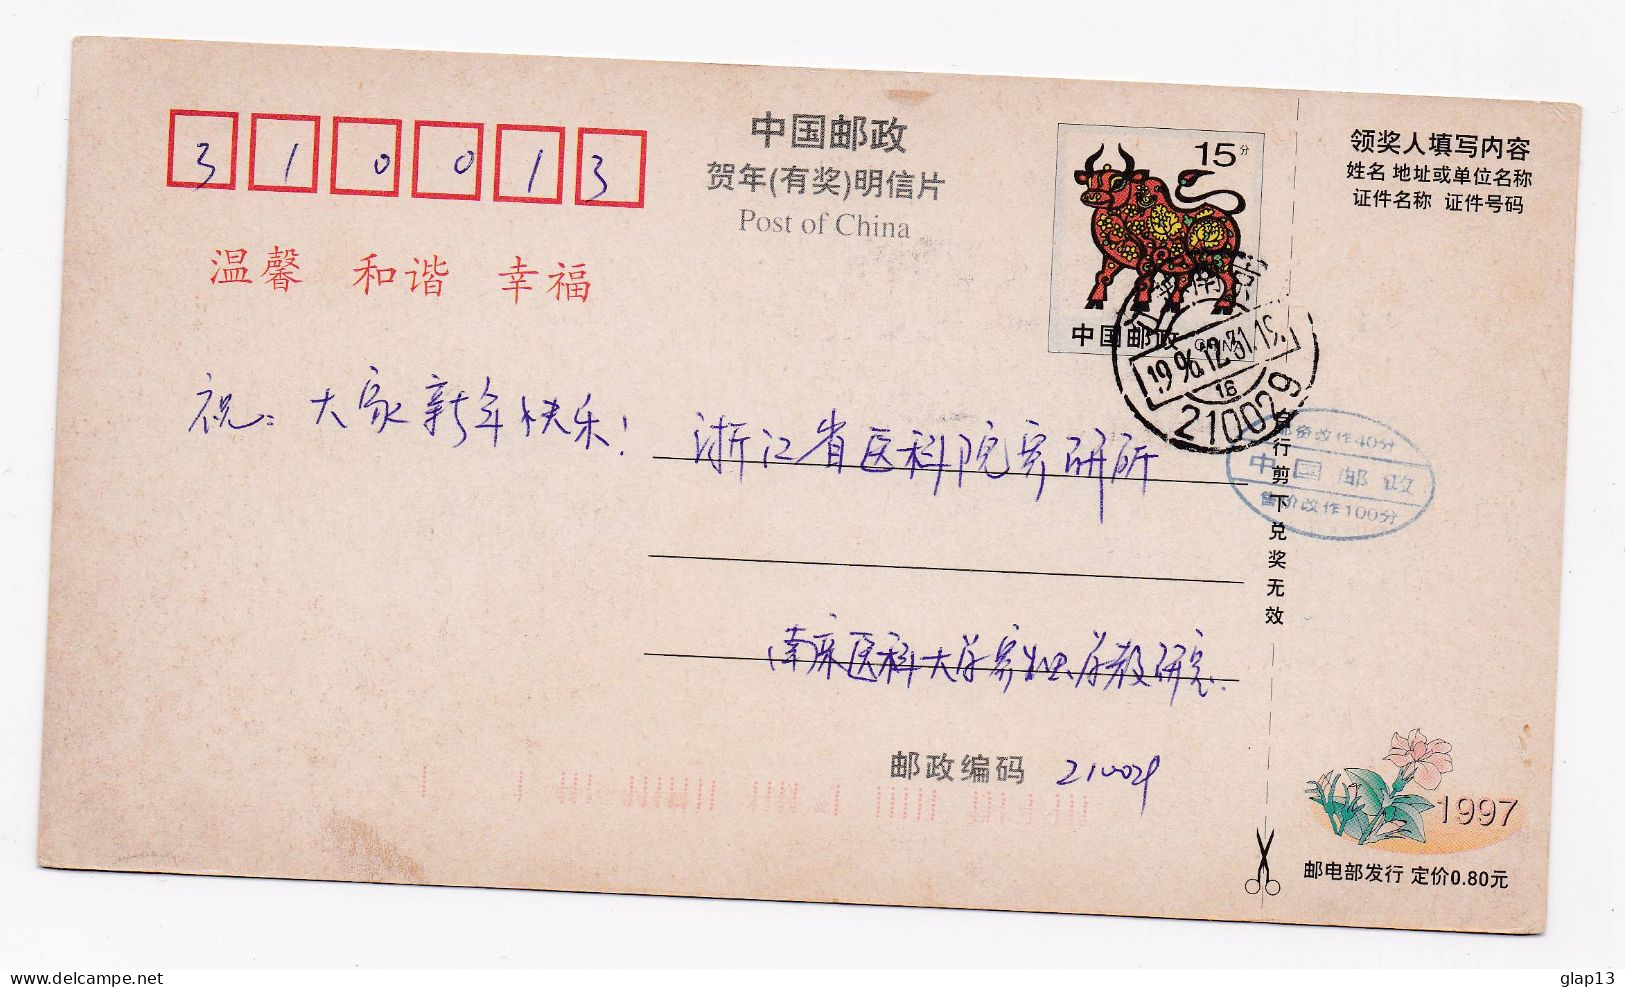 310013
中国邮政
贺年(有奖)明信片
Post of China
15分
中国邮政
领奖人填写内容
姓名 地址或单位名称
证件名称 证件号码
温馨 和谐 幸福
南京
1996.12.31.19
16
210029
祝：大家新年快乐！
浙江省医科院寄研所
邮资改作40分
中国邮政
售价改作100分
自行剪下兑奖无效
南京医科大学寄生虫学教研室
邮政编码 210029
1997
邮电部发行 定价0.80元
glap13